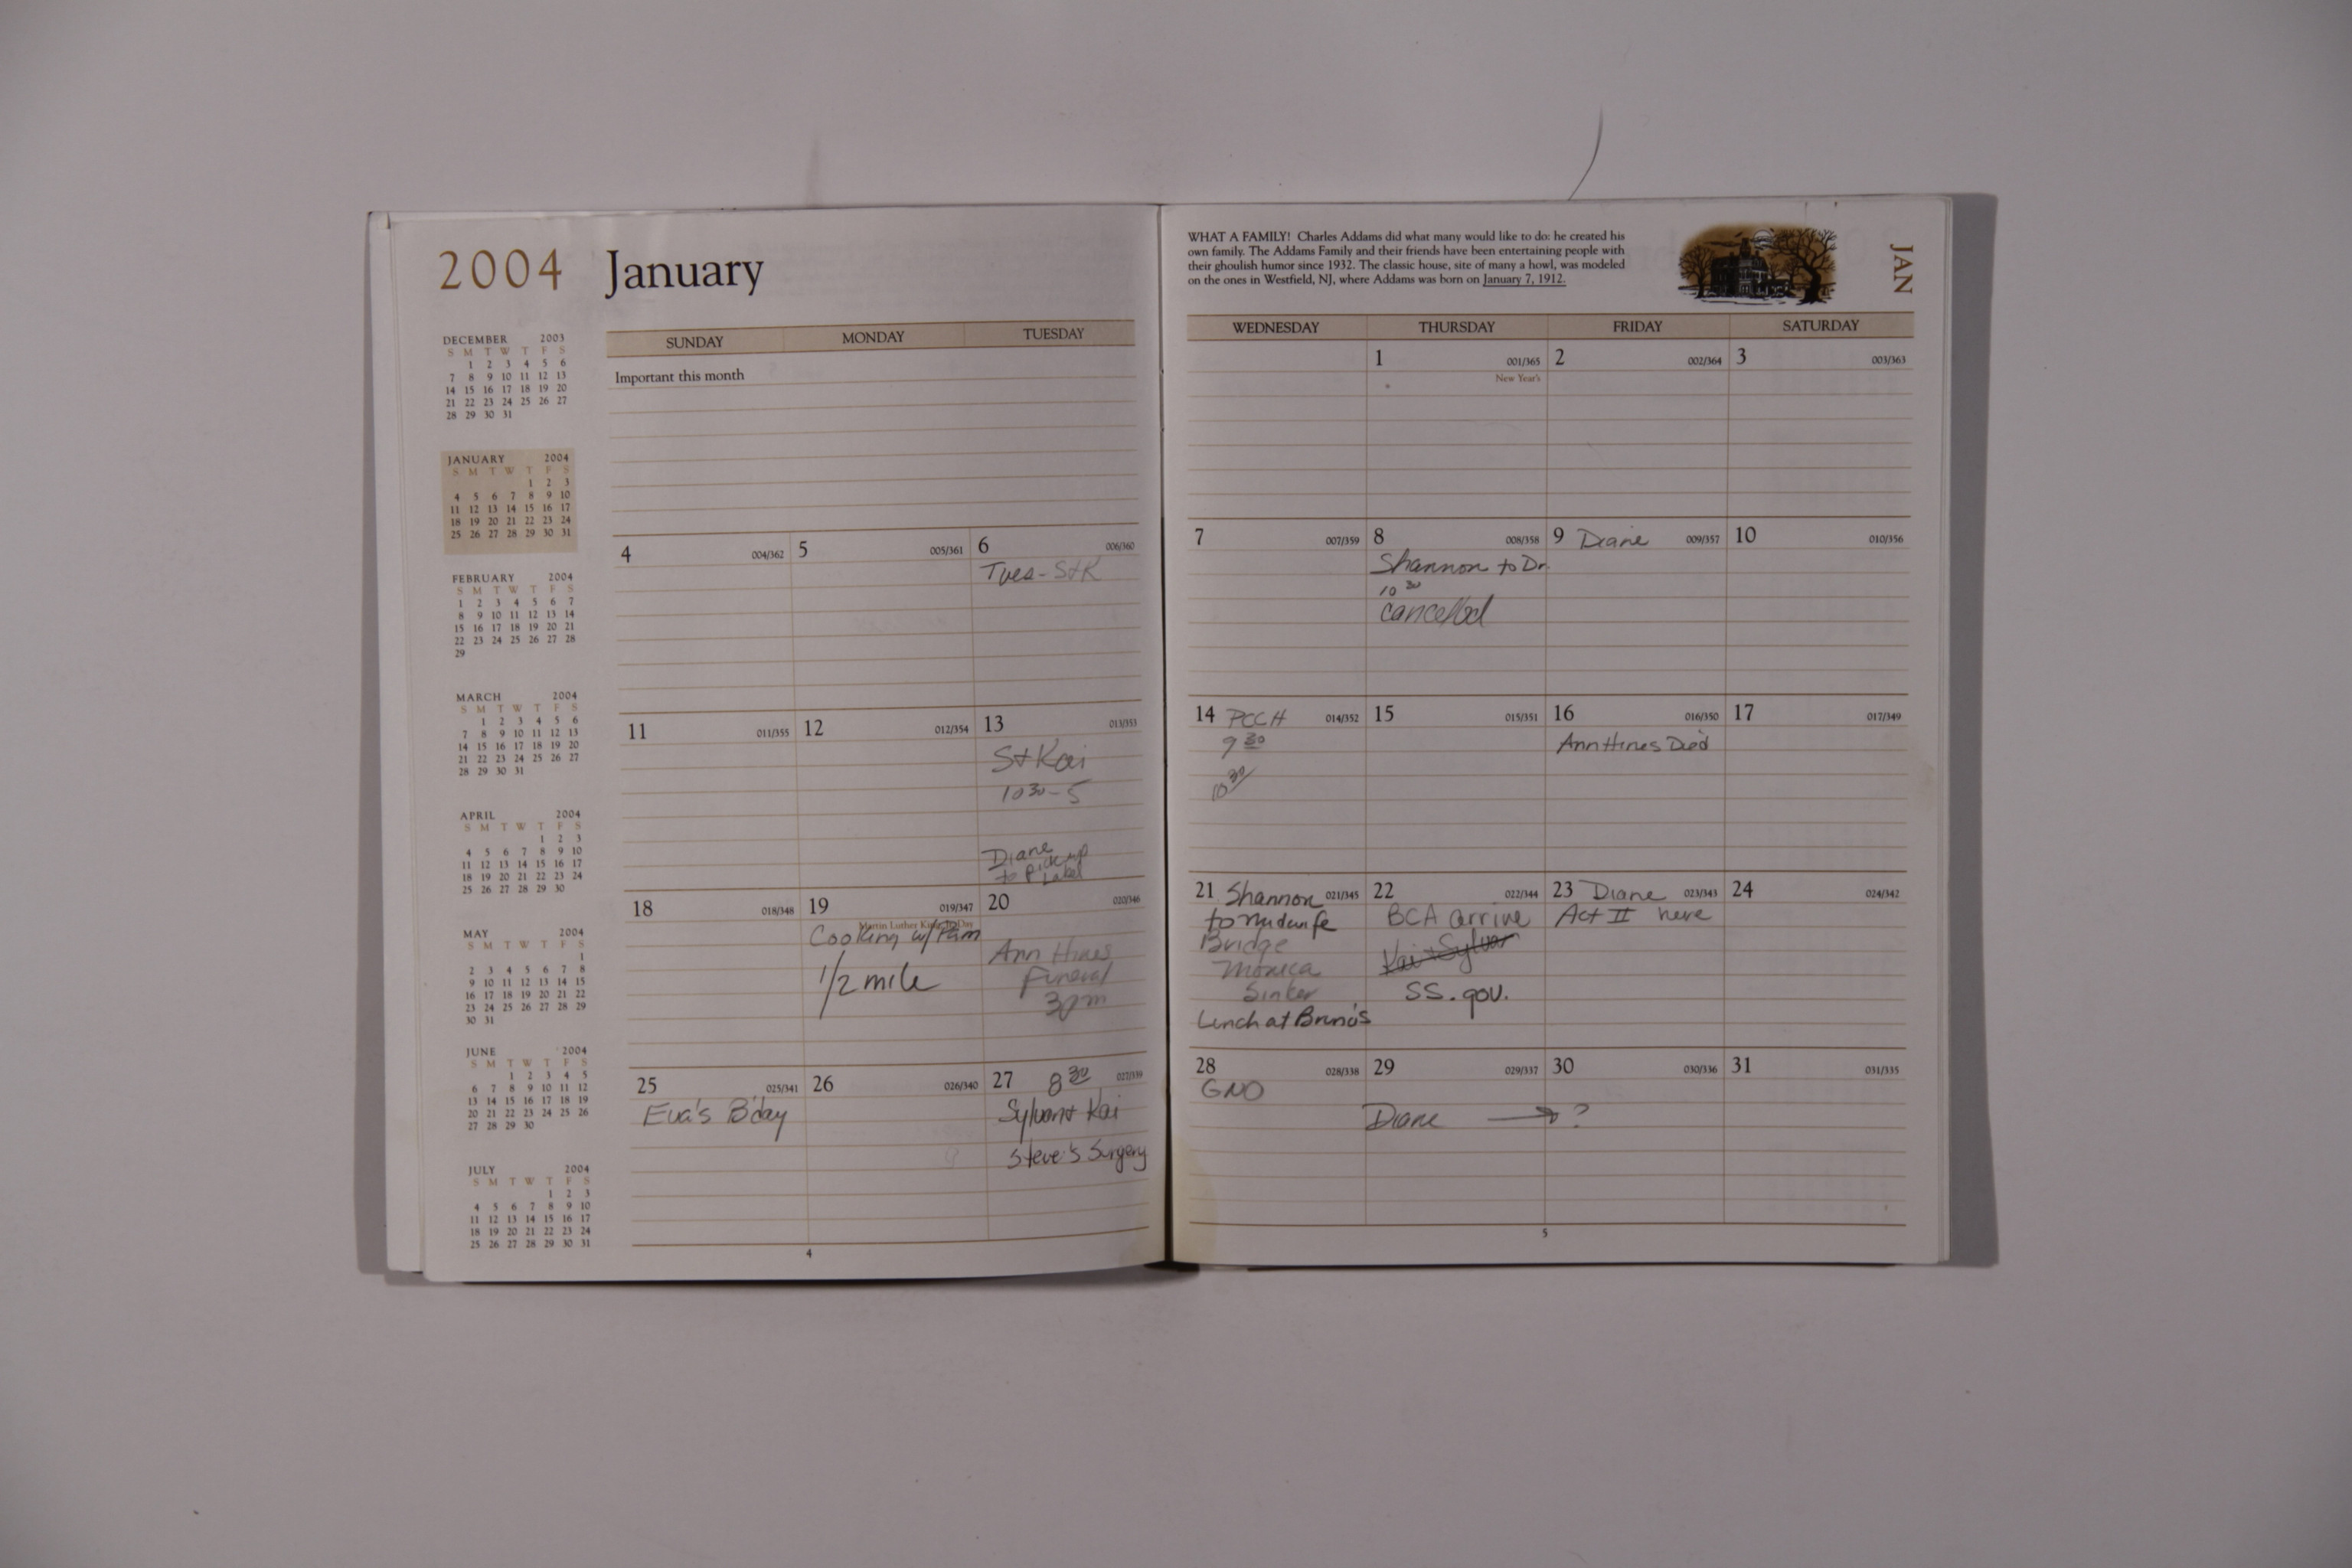 2004 January
DECEMBER 2003
S M T W T F S
1 2 3 4 5 6
7 8 9 10 11 12 13
14 15 16 17 18 19 20
21 22 23 24 25 26 27
28 29 30 31
JANUARY 2004
S M T W T F S
1 2 3
4 5 6 7 8 9 10
11 12 13 14 15 16 17
18 19 20 21 22 23 24
25 26 27 28 29 30 31
FEBRUARY 2004
S M T W T F S
1 2 3 4 5 6 7
8 9 10 11 12 13 14
15 16 17 18 19 20 21
22 23 24 25 26 27 28
29
MARCH 2004
S M T W T F S
1 2 3 4 5 6
7 8 9 10 11 12 13
14 15 16 17 18 19 20
21 22 23 24 25 26 27
28 29 30 31
APRIL 2004
S M T W T F S
1 2 3
4 5 6 7 8 9 10
11 12 13 14 15 16 17
18 19 20 21 22 23 24
25 26 27 28 29 30
MAY 2004
S M T W T F S
1
2 3 4 5 6 7 8
9 10 11 12 13 14 15
16 17 18 19 20 21 22
23 24 25 26 27 28 29
30 31
JUNE 2004
S M T W T F S
1 2 3 4 5
6 7 8 9 10 11 12
13 14 15 16 17 18 19
20 21 22 23 24 25 26
27 28 29 30
JULY 2004
S M T W T F S
1 2 3
4 5 6 7 8 9 10
11 12 13 14 15 16 17
18 19 20 21 22 23 24
25 26 27 28 29 30 31
SUNDAY MONDAY TUESDAY
Important this month
4 004/362 5 005/361 6 006/360
Tues - S+K
11 011/355 12 012/354 13 013/353
S+Kai
10 30 - 5
Diane
to Pick up
Label
18 018/348 19 019/347 20 020/346
Martin Luther King Jr Day
Cooking w/ Pam
1/2 mile
Ann Hines
Funeral
3pm
25 025/341 26 026/340 27 8 30 027/339
Eva's B'day
Sylvan+ Kai
Steve's Surgery
4
WHAT A FAMILY! Charles Addams did what many would like to do: he created his
own family. The Addams Family and their friends have been entertaining people with
their ghoulish humor since 1932. The classic house, site of many a howl, was modeled
on the ones in Westfield, NJ, where Addams was born on January 7, 1912.
JAN
WEDNESDAY THURSDAY FRIDAY SATURDAY
1 001/365 2 002/364 3 003/363
New Year's
7 007/359 8 008/358 9 Diane 009/357 10 010/356
Shannon to Dr.
10 30
cancelled
14 PCCH 014/352 15 015/351 16 016/350 17 017/349
9 30
10 30
Ann Hines Died
21 Shannon 021/345 22 022/344 23 Diane 023/343 24 024/342
to midwife
Bridge
Monica
Sinker
Lunch at Bruno's
BCA arrive
Kai + Sylvan
SS.gov.
Act II here
28 028/338 29 029/337 30 030/336 31 031/335
GNO
Diane → ?
5